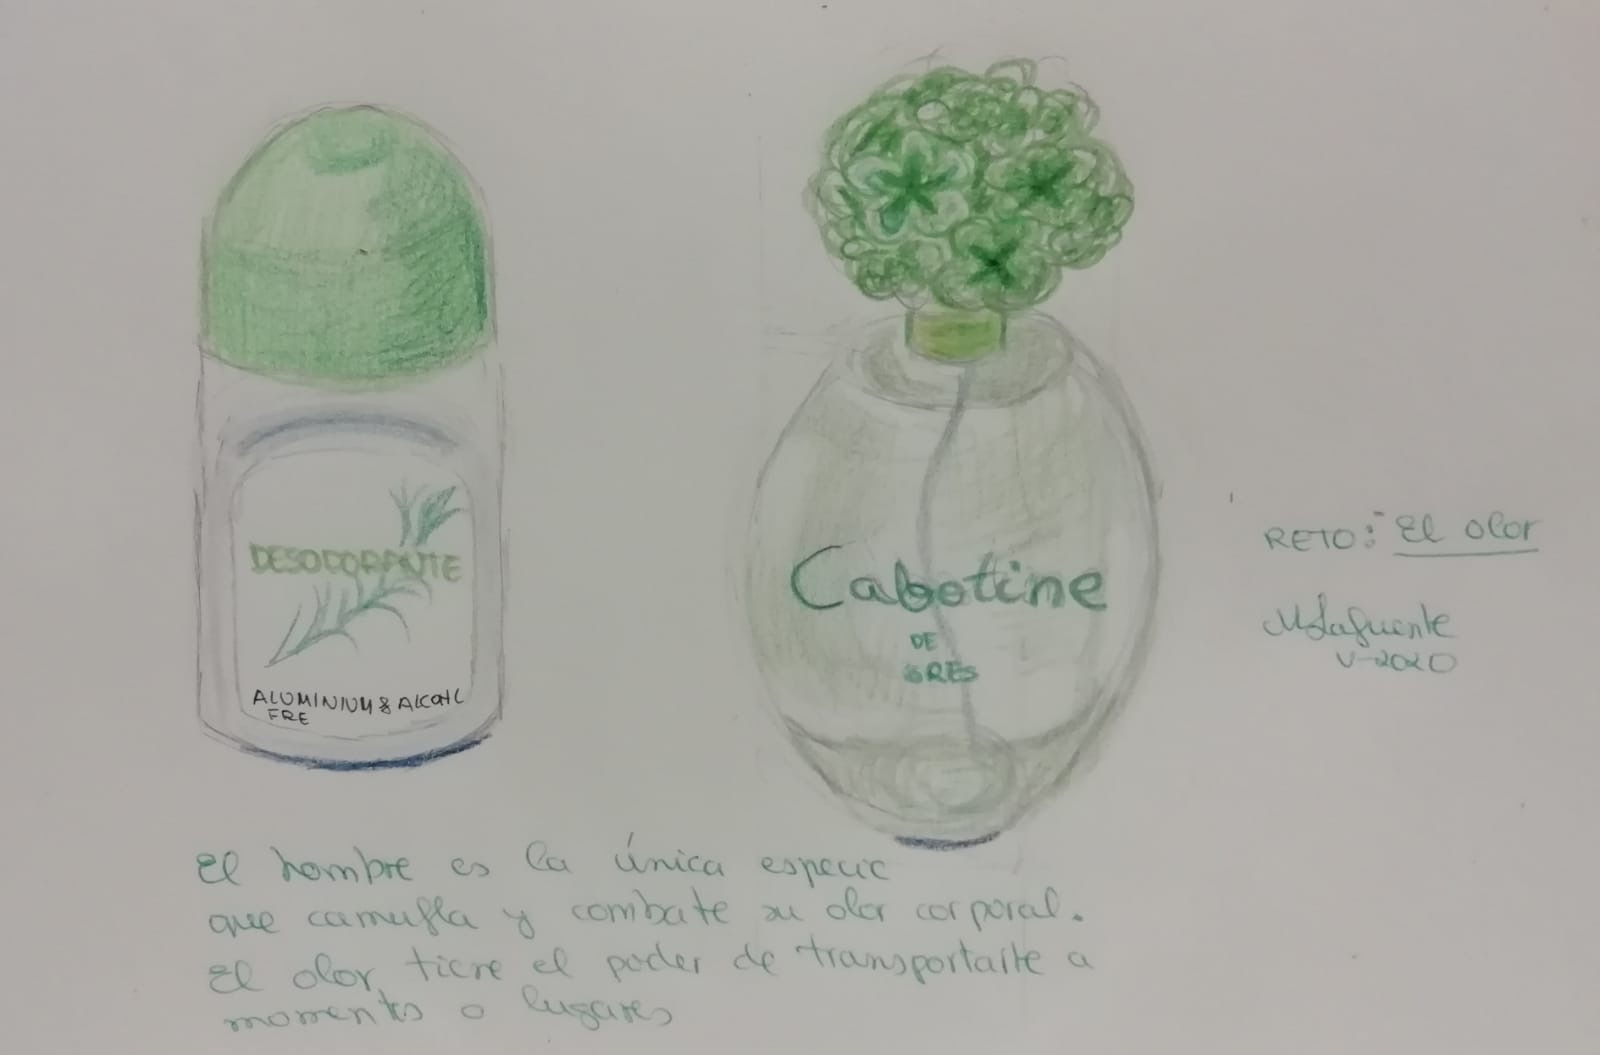 DESODORANTE
ALUMINIUM & ALCOHL
FRE
Cabotine
DE
GRES
RETO: El olor
MLafuente
V-2020
El hombre es la única especie
que camufla y combate su olor corporal.
El olor tiene el poder de transportarte a
momentos o lugares